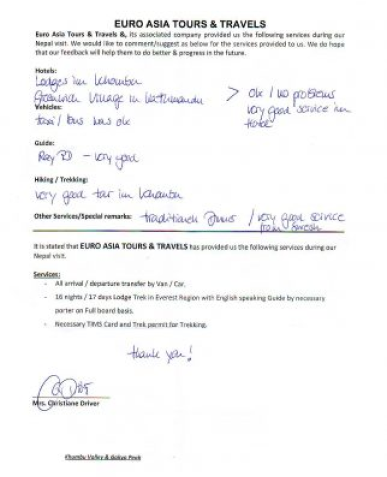 EURO ASIA TOURS & TRAVELS
Euro Asia Tours & Travels &, its associated company provided us the following services during our
Nepal visit. We would like to comment/suggest as below for the services provided to us. We do hope
that our feedback will help them to do better & progress in the future.
Hotels:
Lodges in Khumbu
Greenwich Village in Kathmandu > ok / no problems
very good service in
Hotel
Vehicles:
taxi / bus was ok
Guide:
- very good
Hiking / Trekking:
very good tour in Khumbu
Other Services/Special remarks: traditional / very good service
from
It is stated that EURO ASIA TOURS & TRAVELS has provided us the following services during our
Nepal visit.
Services:
- All arrival / departure transfer by Van / Car.
- 16 nights / 17 days Lodge Trek in Everest Region with English speaking Guide by necessary
porter on Full board basis.
- Necessary TIMS Card and Trek permit for Trekking.
thank you!
Mrs. Christiane Driver
Khumbu Valley & Gokyo Peak